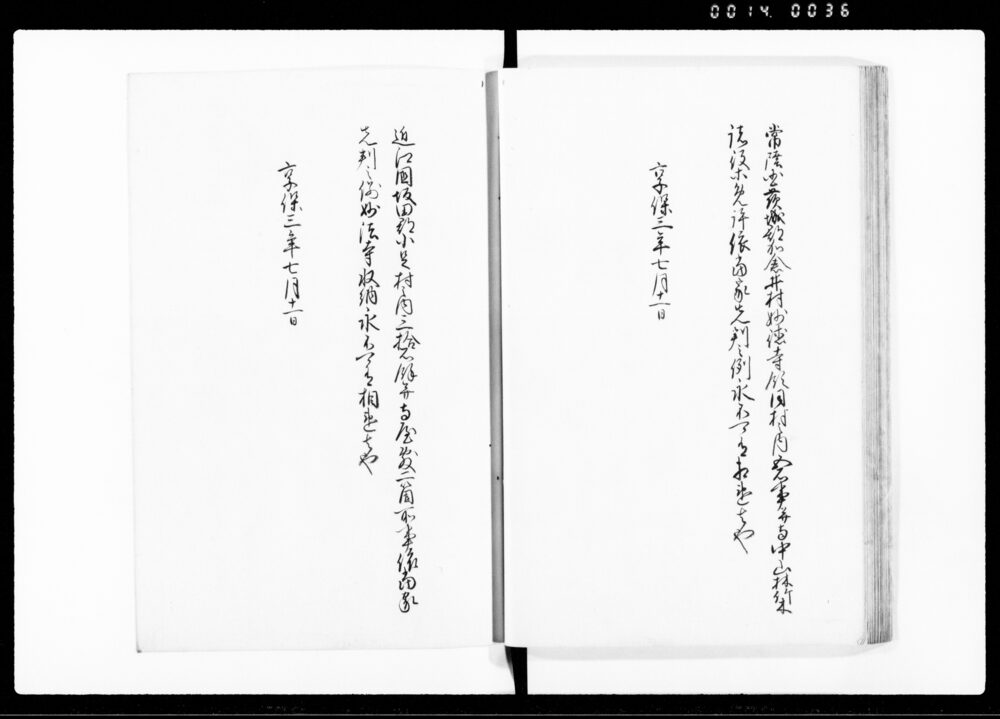 0014. 0036
常陸国茨城郡加倉井村妙徳寺領同村之内五石事并寺中山林竹木
諸役等免許依当家先判之例永不可有相違者也
享保三年七月十一日
近江国坂田郡小足村之内三拾石余并寺屋敷二箇所事依当家
先判之例妙法寺収納永不可有相違者也
享保三年七月十一日